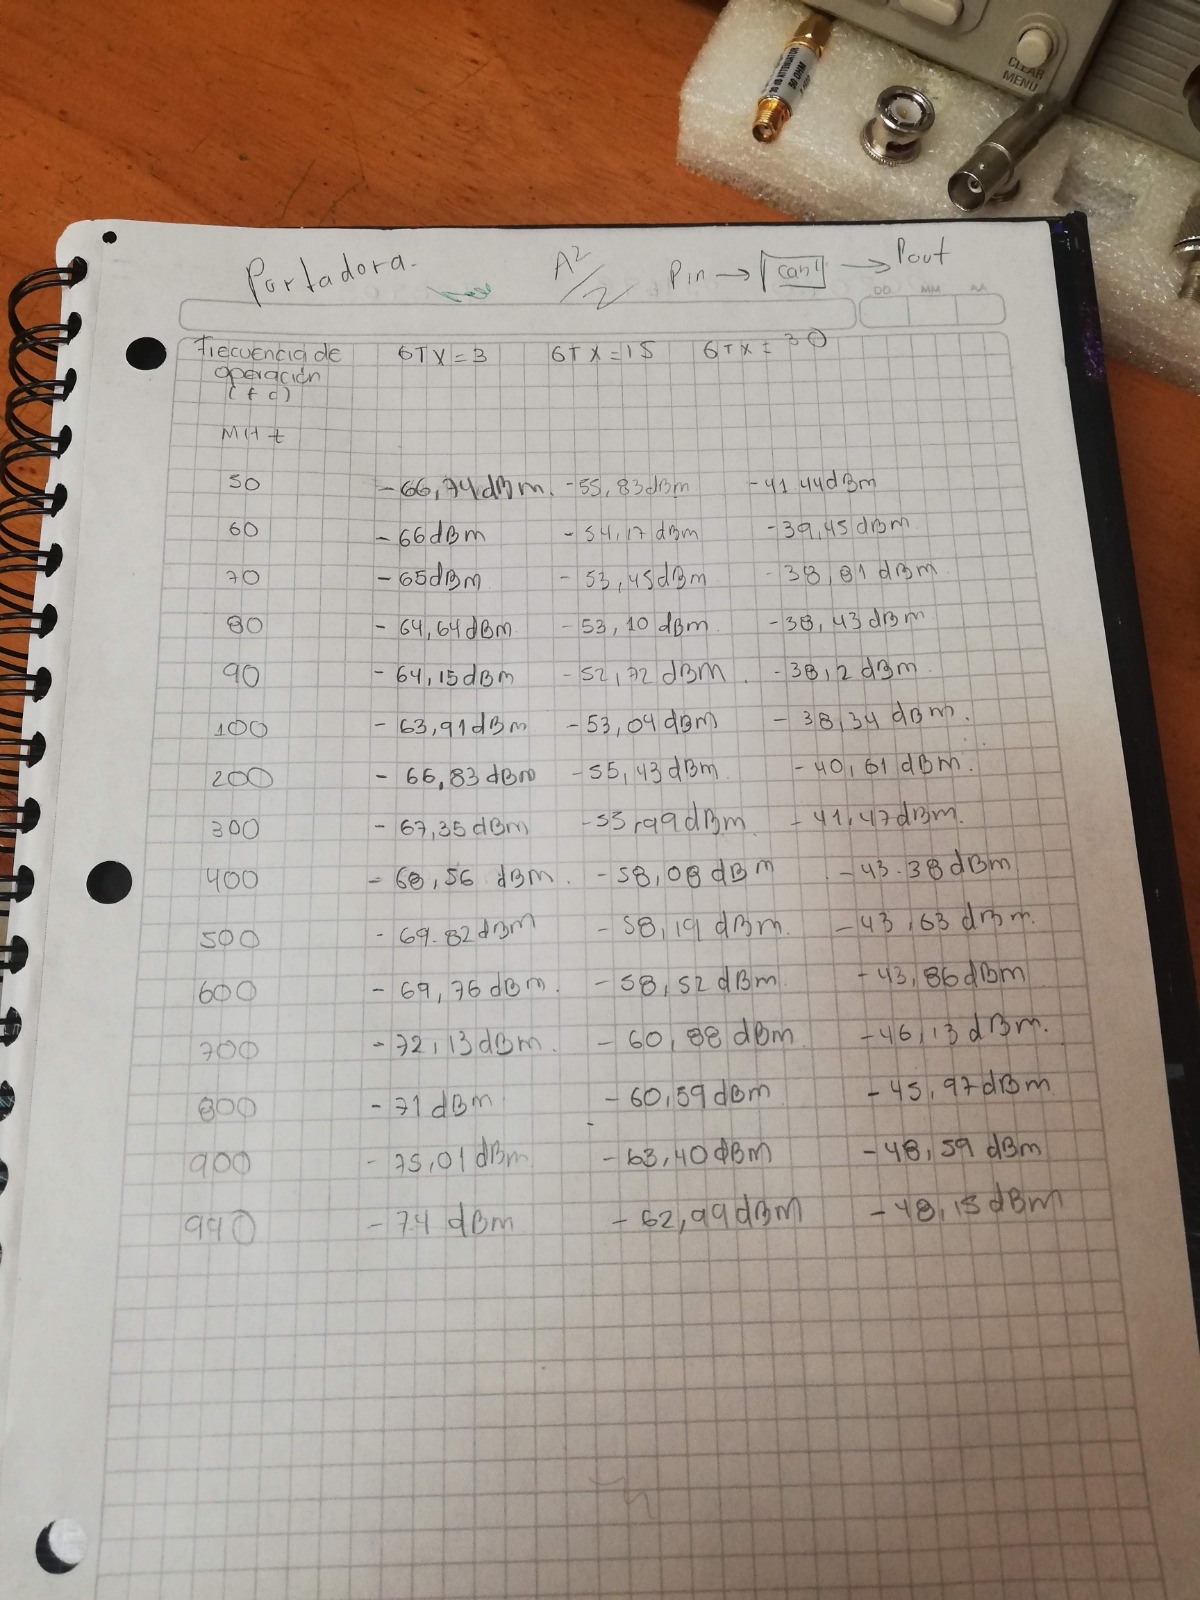 CLEAR
MENU
ATTENUATOR
50 OHM
Portadora.
A²/2
Pin → Canl → Pout
DD MM AA
Frecuencia de GTX=3 GTX=15 GTX=30
operación
(fc)
MHz
50 -66,74dBm. -55,83dBm -41,44dBm
60 -66dBm -54,17dBm -39,45dBm
70 -65dBm -53,45dBm -38,81dBm
80 -64,64dBm -53,10dBm. -38,43dBm
90 -64,15dBm -52,72dBm. -38,2dBm.
100 -63,91dBm -53,04dBm -38,34dBm.
200 -66,83dBm -55,43dBm. -40,61dBm.
300 -67,35dBm -55,99dBm. -41,47dBm.
400 -68,56 dBm. -58,08dBm -43.38dBm
500 -69.82dBm -58,19dBm. -43,63dBm.
600 -69,76dBm. -58,52dBm -43,86dBm
700 -72,13dBm. -60,88dBm -46,13dBm.
800 -71dBm -60,59dBm -45,97dBm
900 -75,01dBm -63,40dBm -48,59dBm
990 -74dBm -62,99dBm -48,15dBm